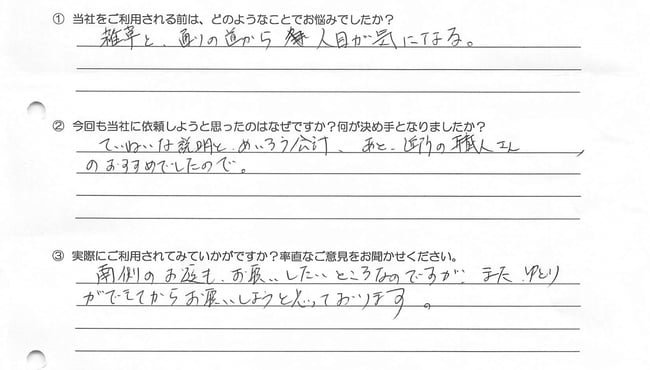 ① 当社をご利用される前は、どのようなことでお悩みでしたか?
雑草と、通りの道から 人目が気になる。
② 今回も当社に依頼しようと思ったのはなぜですか?何が決め手となりましたか?
ていねいな説明と、めいろう会計、あと、近所の職人さん
のおすすめでしたので。
③ 実際にご利用されてみていかがですか?率直なご意見をお聞かせください。
南側のお庭も、お願いしたいところなのですが、また、ゆとり
ができてからお願いしようと思っております。